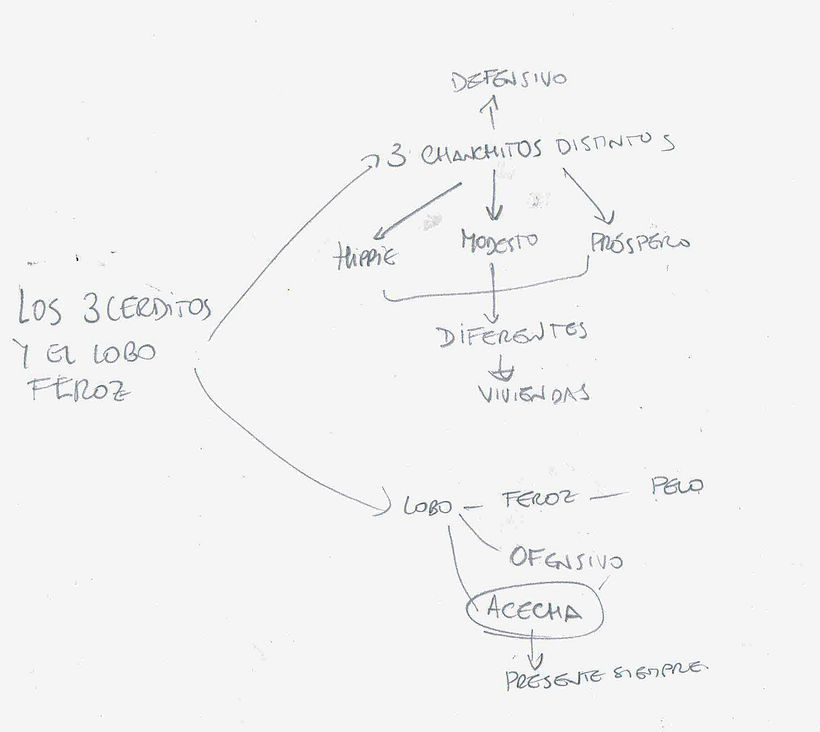 DEFENSIVO
3 CHANCHITOS DISTINTOS
HIPPIE
MODESTO
PRÓSPERO
LOS 3 CERDITOS
Y EL LOBO
FEROZ
DIFERENTES
VIVIENDAS
LOBO - FEROZ - PELO
OFENSIVO
ACECHA
PRESENTE SIEMPRE